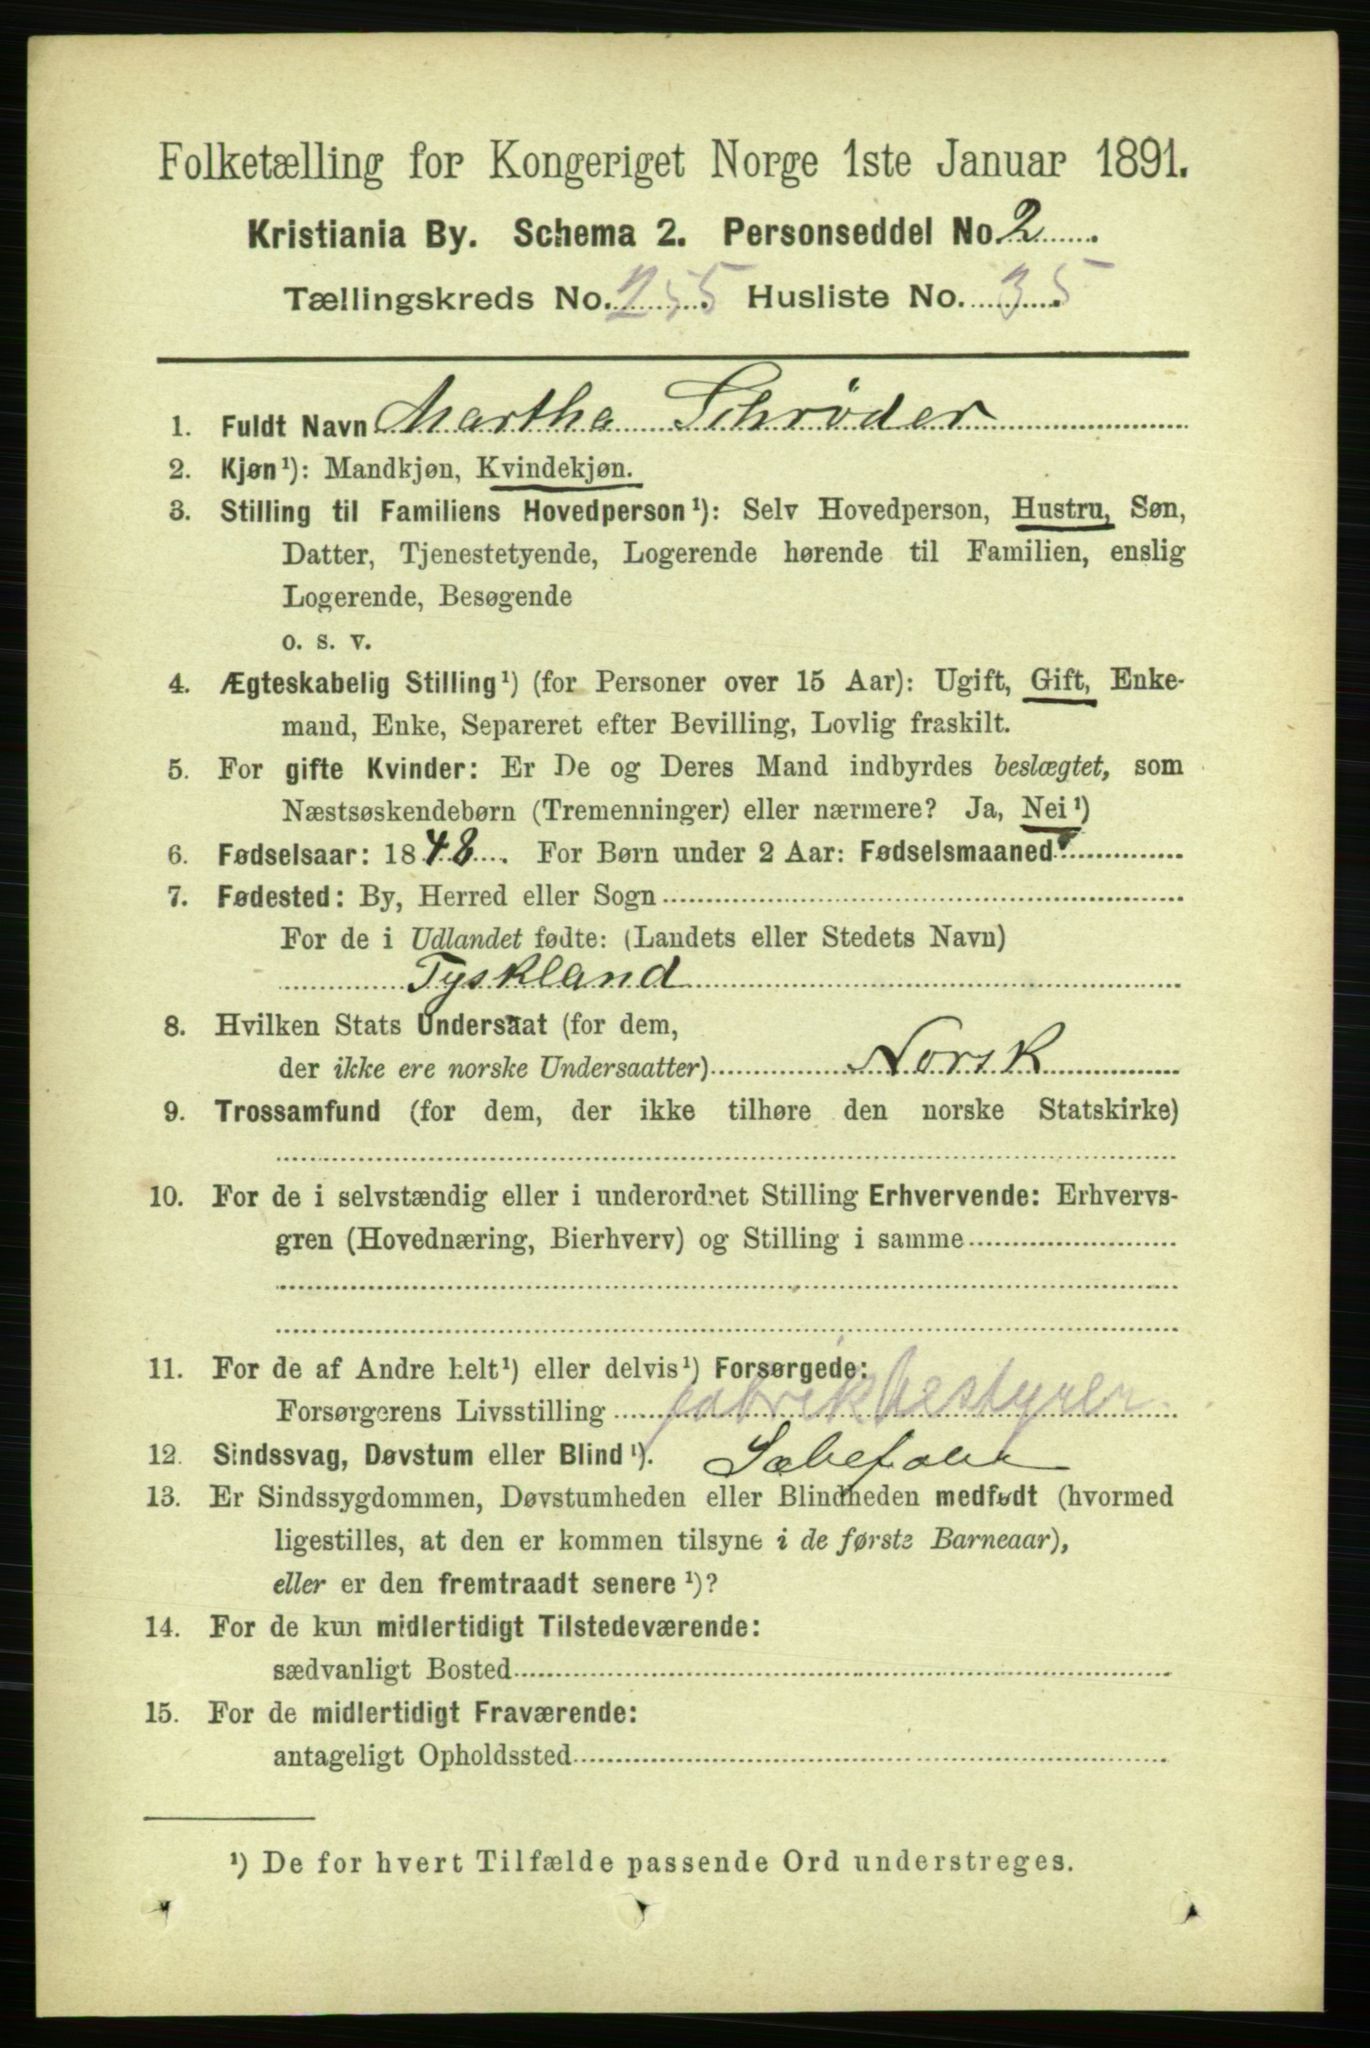 Folketælling for Kongeriget Norge 1ste Januar 1891.
Kristiania By. Schema 2. Personseddel No. 2
Tællingskreds No. 255 Husliste No. 35
1. Fuldt Navn Martha Schrøder
2. Kjøn¹): Mandkjøn, Kvindekjøn.
3. Stilling til Familiens Hovedperson¹): Selv Hovedperson, Hustru, Søn,
Datter, Tjenestetyende, Logerende hørende til Familien, enslig
Logerende, Besøgende
o. s. v.
4. Ægteskabelig Stilling¹) (for Personer over 15 Aar): Ugift, Gift, Enke-
mand, Enke, Separeret efter Bevilling, Lovlig fraskilt.
5. For gifte Kvinder: Er De og Deres Mand indbyrdes beslægtet, som
Næstsøskendebørn (Tremenninger) eller nærmere? Ja, Nei¹)
6. Fødselsaar: 1848. For Børn under 2 Aar: Fødselsmaaned
7. Fødested: By, Herred eller Sogn
For de i Udlandet fødte: (Landets eller Stedets Navn)
Tyskland
8. Hvilken Stats Undersaat (for dem,
der ikke ere norske Undersaatter) Norsk
9. Trossamfund (for dem, der ikke tilhøre den norske Statskirke)
10. For de i selvstændig eller i underordnet Stilling Erhvervende: Erhvervs-
gren (Hovednæring, Bierhverv) og Stilling i samme
11. For de af Andre helt¹) eller delvis¹) Forsørgede:
Forsørgerens Livsstilling fabrikbestyrer
12. Sindssvag, Døvstum eller Blind¹).
13. Er Sindssygdommen, Døvstumheden eller Blindheden medfødt (hvormed
ligestilles, at den er kommen tilsyne i de første Barneaar),
eller er den fremtraadt senere¹)?
14. For de kun midlertidigt Tilstedeværende:
sædvanligt Bosted
15. For de midlertidigt Fraværende:
antageligt Opholdssted
¹) De for hvert Tilfælde passende Ord understreges.